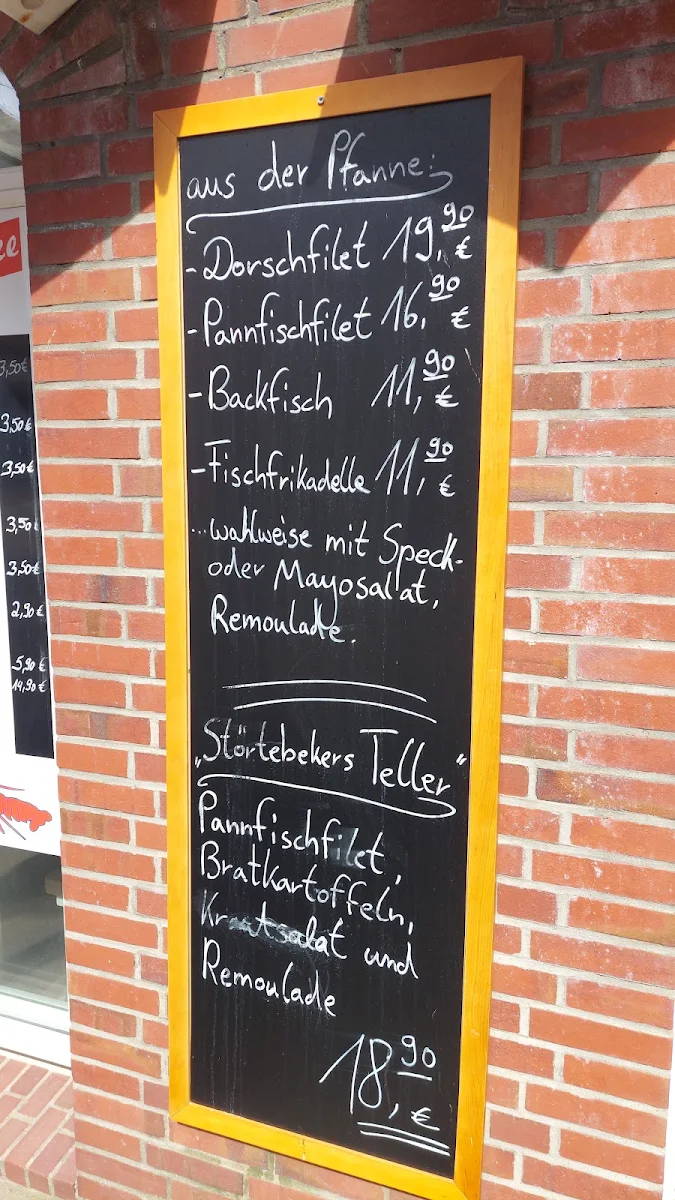 aus der Pfanne:
- Dorschfilet 19,90 €
- Pannfischfilet 16,90 €
- Backfisch 11,90 €
- Fischfrikadelle 11,90 €
... wahlweise mit Speck-
oder Mayosalat,
Remoulade.
„Störtebekers Teller"
Pannfischfilet,
Bratkartoffeln,
Krautsalat und
Remoulade
18,90 €
3,50€
3,50€
3,50€
3,50€
3,50€
2,90€
5,90€
14,90€